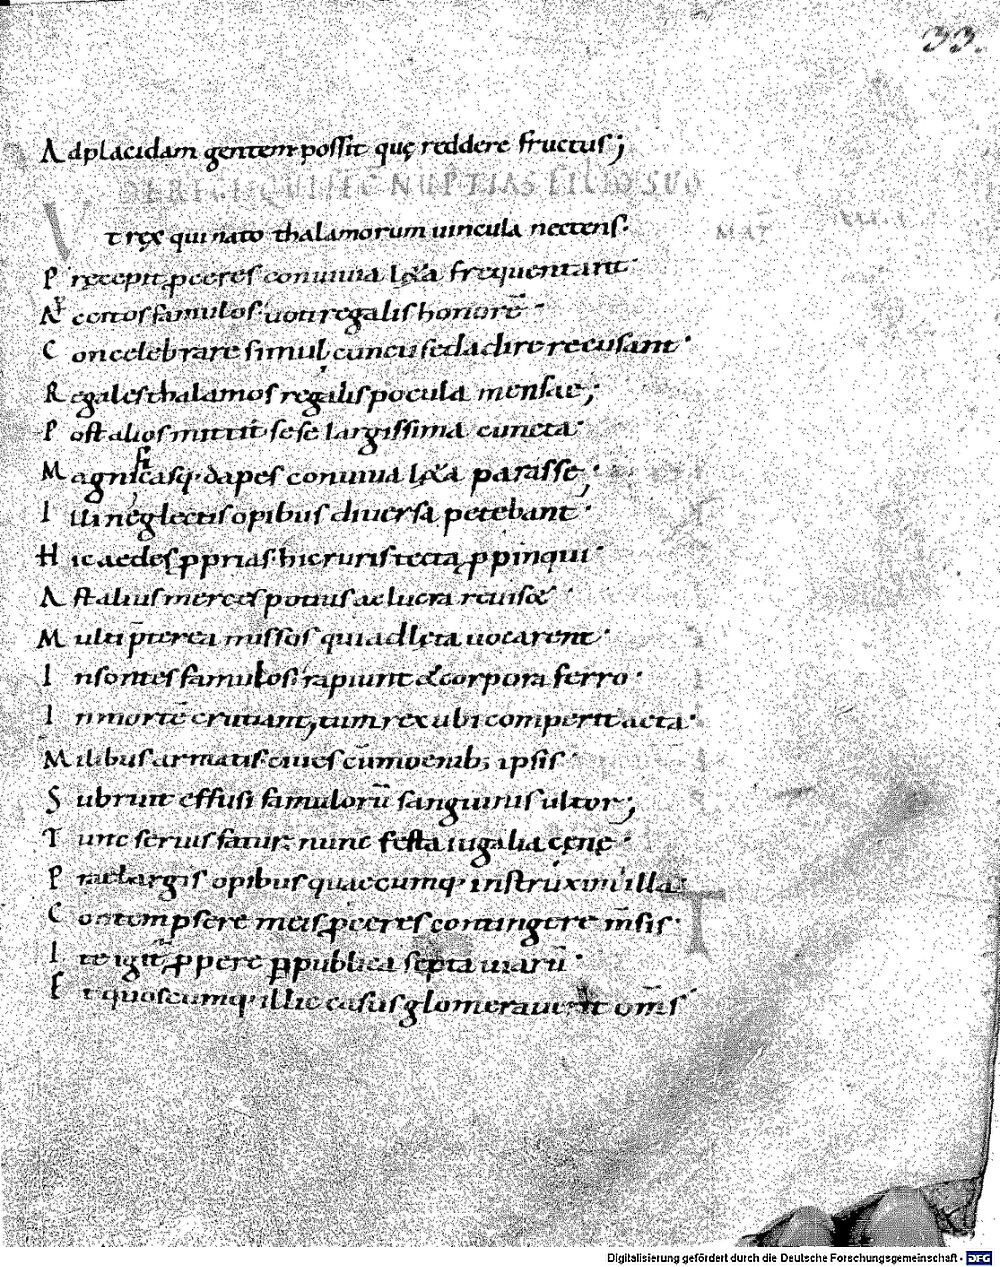 33.
Adplacidam gentem possit quę reddere fructus;
DE REGE QUI FEC NUPTIAS FILIO SUO
Ut ręx qui nato thalamorum uincula nectens·
Precepit ꝓceres conuiuia l&a frequentant·
Ac cortos famulos uoti regalis honorē·
Concelebrare simul, cuncti sed adire recusant·
Regales thalamos regalis pocula mensae;
Post alios mittit sese largissima cuncta·
Magnificasq· dapes conuiuia l&a parasse;
Illi neglectis opibus diuersa petebant·
Hic aedes ꝓprias· hic ruris tecta ꝓpinqui·
Ast alius merces potius ac lucra reuis&·
Multi p̄terea missos qui ad lęta uocarent·
Insontes famulos rapiunt & corpora ferro·
In mortē cruciant, tum rex ubi comperit acta·
Milibus armatis ciues cū moenib; ipsis·
Subruit effusi famulorū sanguinis ultor;
Tunc seruis fatur· nunc festa iugalia cęnę·
Prae largis opibus quaecumq· instruximus illa·
Contempsere meis ꝓceres contingere m̄sis·
Ite igit̄ ꝓpere ꝑ publica septa uiarū·
Et quoscumq· illic casus glomerauerit om̄s·
Digitalisierung gefördert durch die Deutsche Forschungsgemeinschaft - DFG